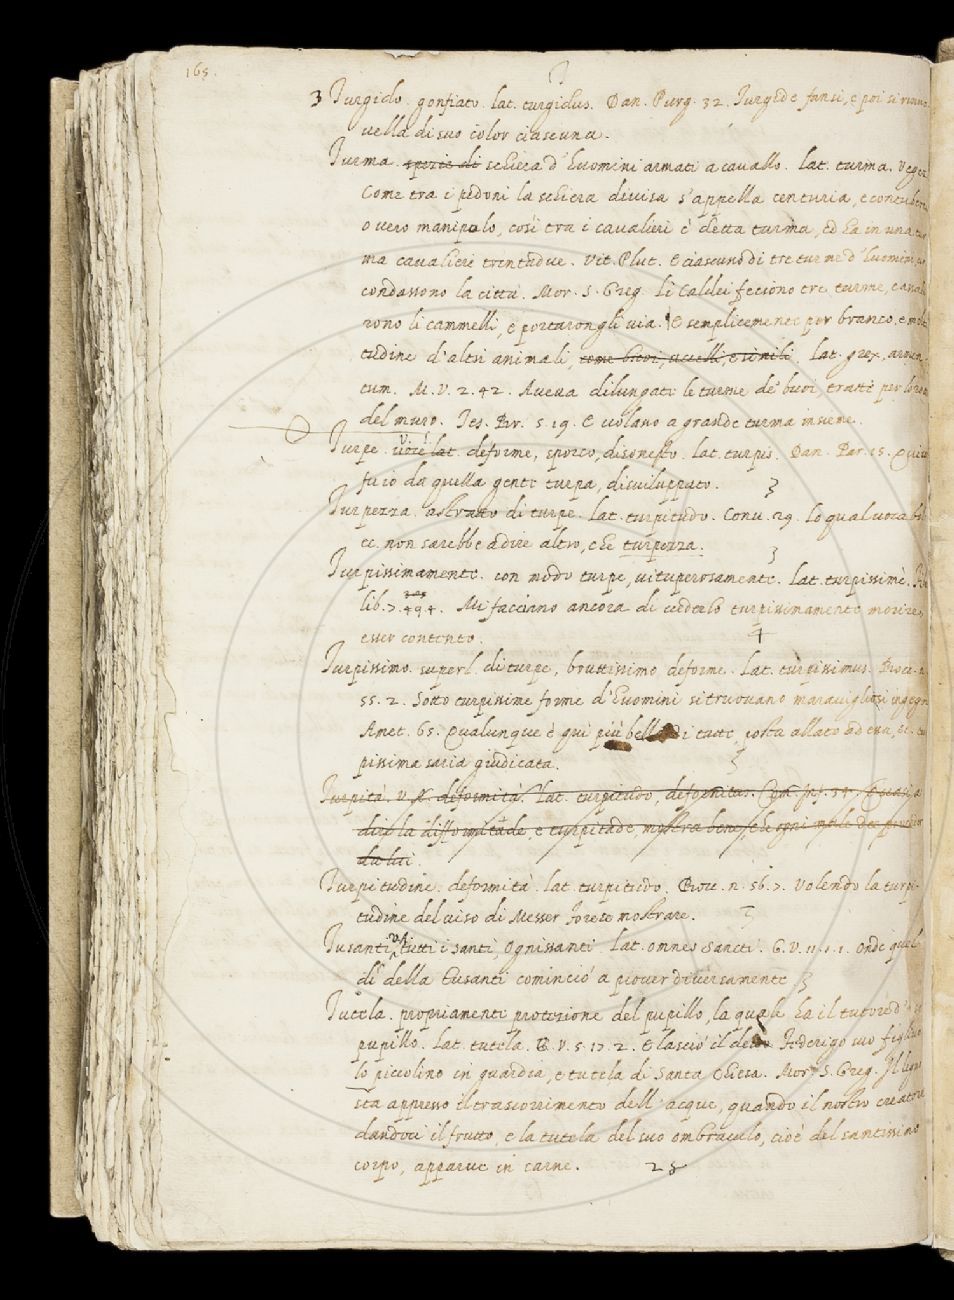 165.
T
3 Turgido. gonfiato. lat. turgidus. Dan. Purg. 32. Turgide fansi, e poi si rinno
vella di suo color ciascuna.
Turma. spezie di schiera d'huomini armati a cavallo. Lat. turma. Vegez.
Come tra i pedoni la schiera divisa s'appella centuria, e contubern
o vero manipolo, così tra i cavalieri è detta turma, ed ha in una tur
ma cavalieri trentadue. Vit. Plut. E ciascuno di tre turme d'huomini,
condassono la città. Mor. S. Greg. Li Caldei feciono tre turme, e
rono li cammelli, e portarongli via. E semplicemente per branco, e mol
tudine d'altri animali, come buoi, uccelli, e simili, Lat. grex, armen
tum. M. V. 2. 42. Aveva dilungati le turme de' buoi tratti per
del muro. Tes. Br. 5. 19. E volano a grande turma insieme.
Turpe. Voce lat. deforme, sporco, disonesto. lat. turpis. Dan. Par. 15. Quivi
fu io da quella gente turpa, disviluppato. 3
Turpezza. astratto di turpe. Lat. turpitudo. Conv. 29. Lo qual vocabol
ec. non sarebbe adire altro, che turpezza. 3
Turpissimamente. con modo turpe, vituperosamente. Lat. turpissimè.
lib. 7. 494. Mi facciano ancora di vederlo turpissimamente morire,
esser contento. 4
Turpissimo. superl. di turpe, bruttissimo, deforme. Lat. turpissimus. Bocc. n.
55. 2. Sotto turpissime forme d'huomini si truovano maravigliosi ingegn
Amet. 65. Qualunque è quì più bella di tutte, posta allato ad essa, tur
pissima saria giudicata. 3
Turpità. V. A. deformità. Lat. turpitudo, deformitas.
dir la difformitade, e turpitade, mostra bene, che ogni male
da lui.
Turpitudine. deformità. lat. turpitudo. Bocc. n. 56. 7. Volendo la turpi
tudine del viso di Messer Forese mostrare. 2
Tusanti. VA tutti i santi, Ognissanti. Lat. omnes sancti. G. V. 11. 1. 1. Onde quel
dì della Tusanti cominciò a piover diversamente 3
Tutela. propriamente protezione del pupillo, la quale ha il tutore d'
pupillo. Lat. tutela. G. V. 5. 17. 2. E lasciò il detto Federigo suo figliuo
lo piccolino in guardia, e tutela di Santa Chiesa. Mor. S. Greg. Il
sta appresso il trascorrimento dell'acque, quando il nostro creatore
dandoci il frutto, e la tutela del suo ombracolo, cioè del santissimo
corpo, apparve in carne. 25